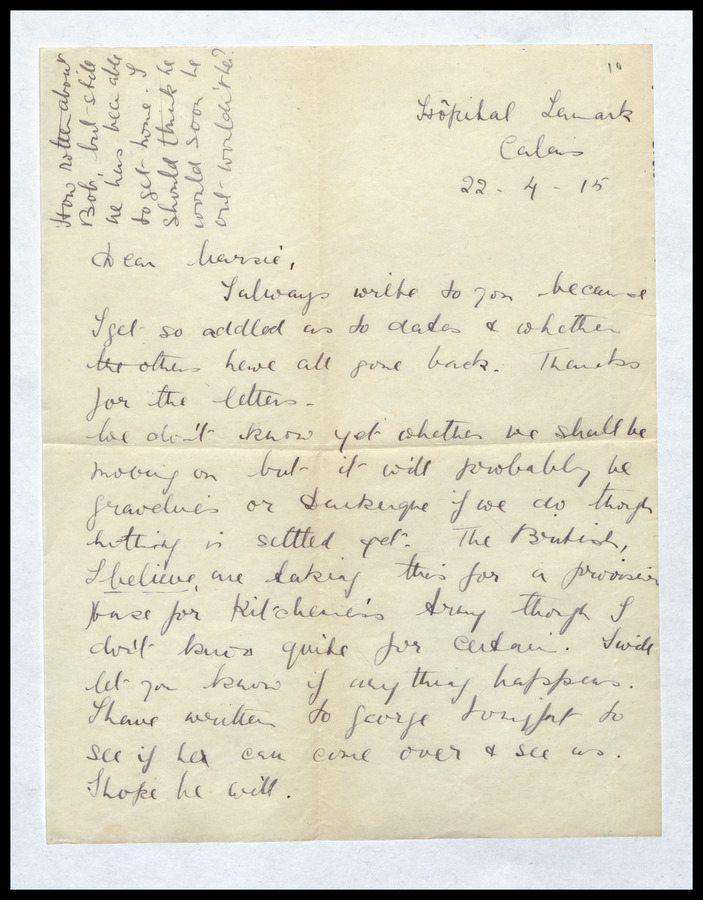 10
Hôpital Lamark
Calais
22 - 4 - 15
How rotten about
Bob, but still
he has been able
to get home - I
should think he
would soon be
out wouldn't he?
Dear
I always write to you because
I get so addled as to dates & whether
the others have all gone back. Thanks
for the letters -
We don't know yet whether we shall be
moving on but it will probably be
Gravelines or Dunkerque if we do though
nothing is settled yet. The British,
I believe, are taking this for a provision
base for Kitchener's Army though I
don't know quite for certain. I will
let you know if anything happens.
I have written to George tonight to
see if he can come over & see us.
I hope he will.